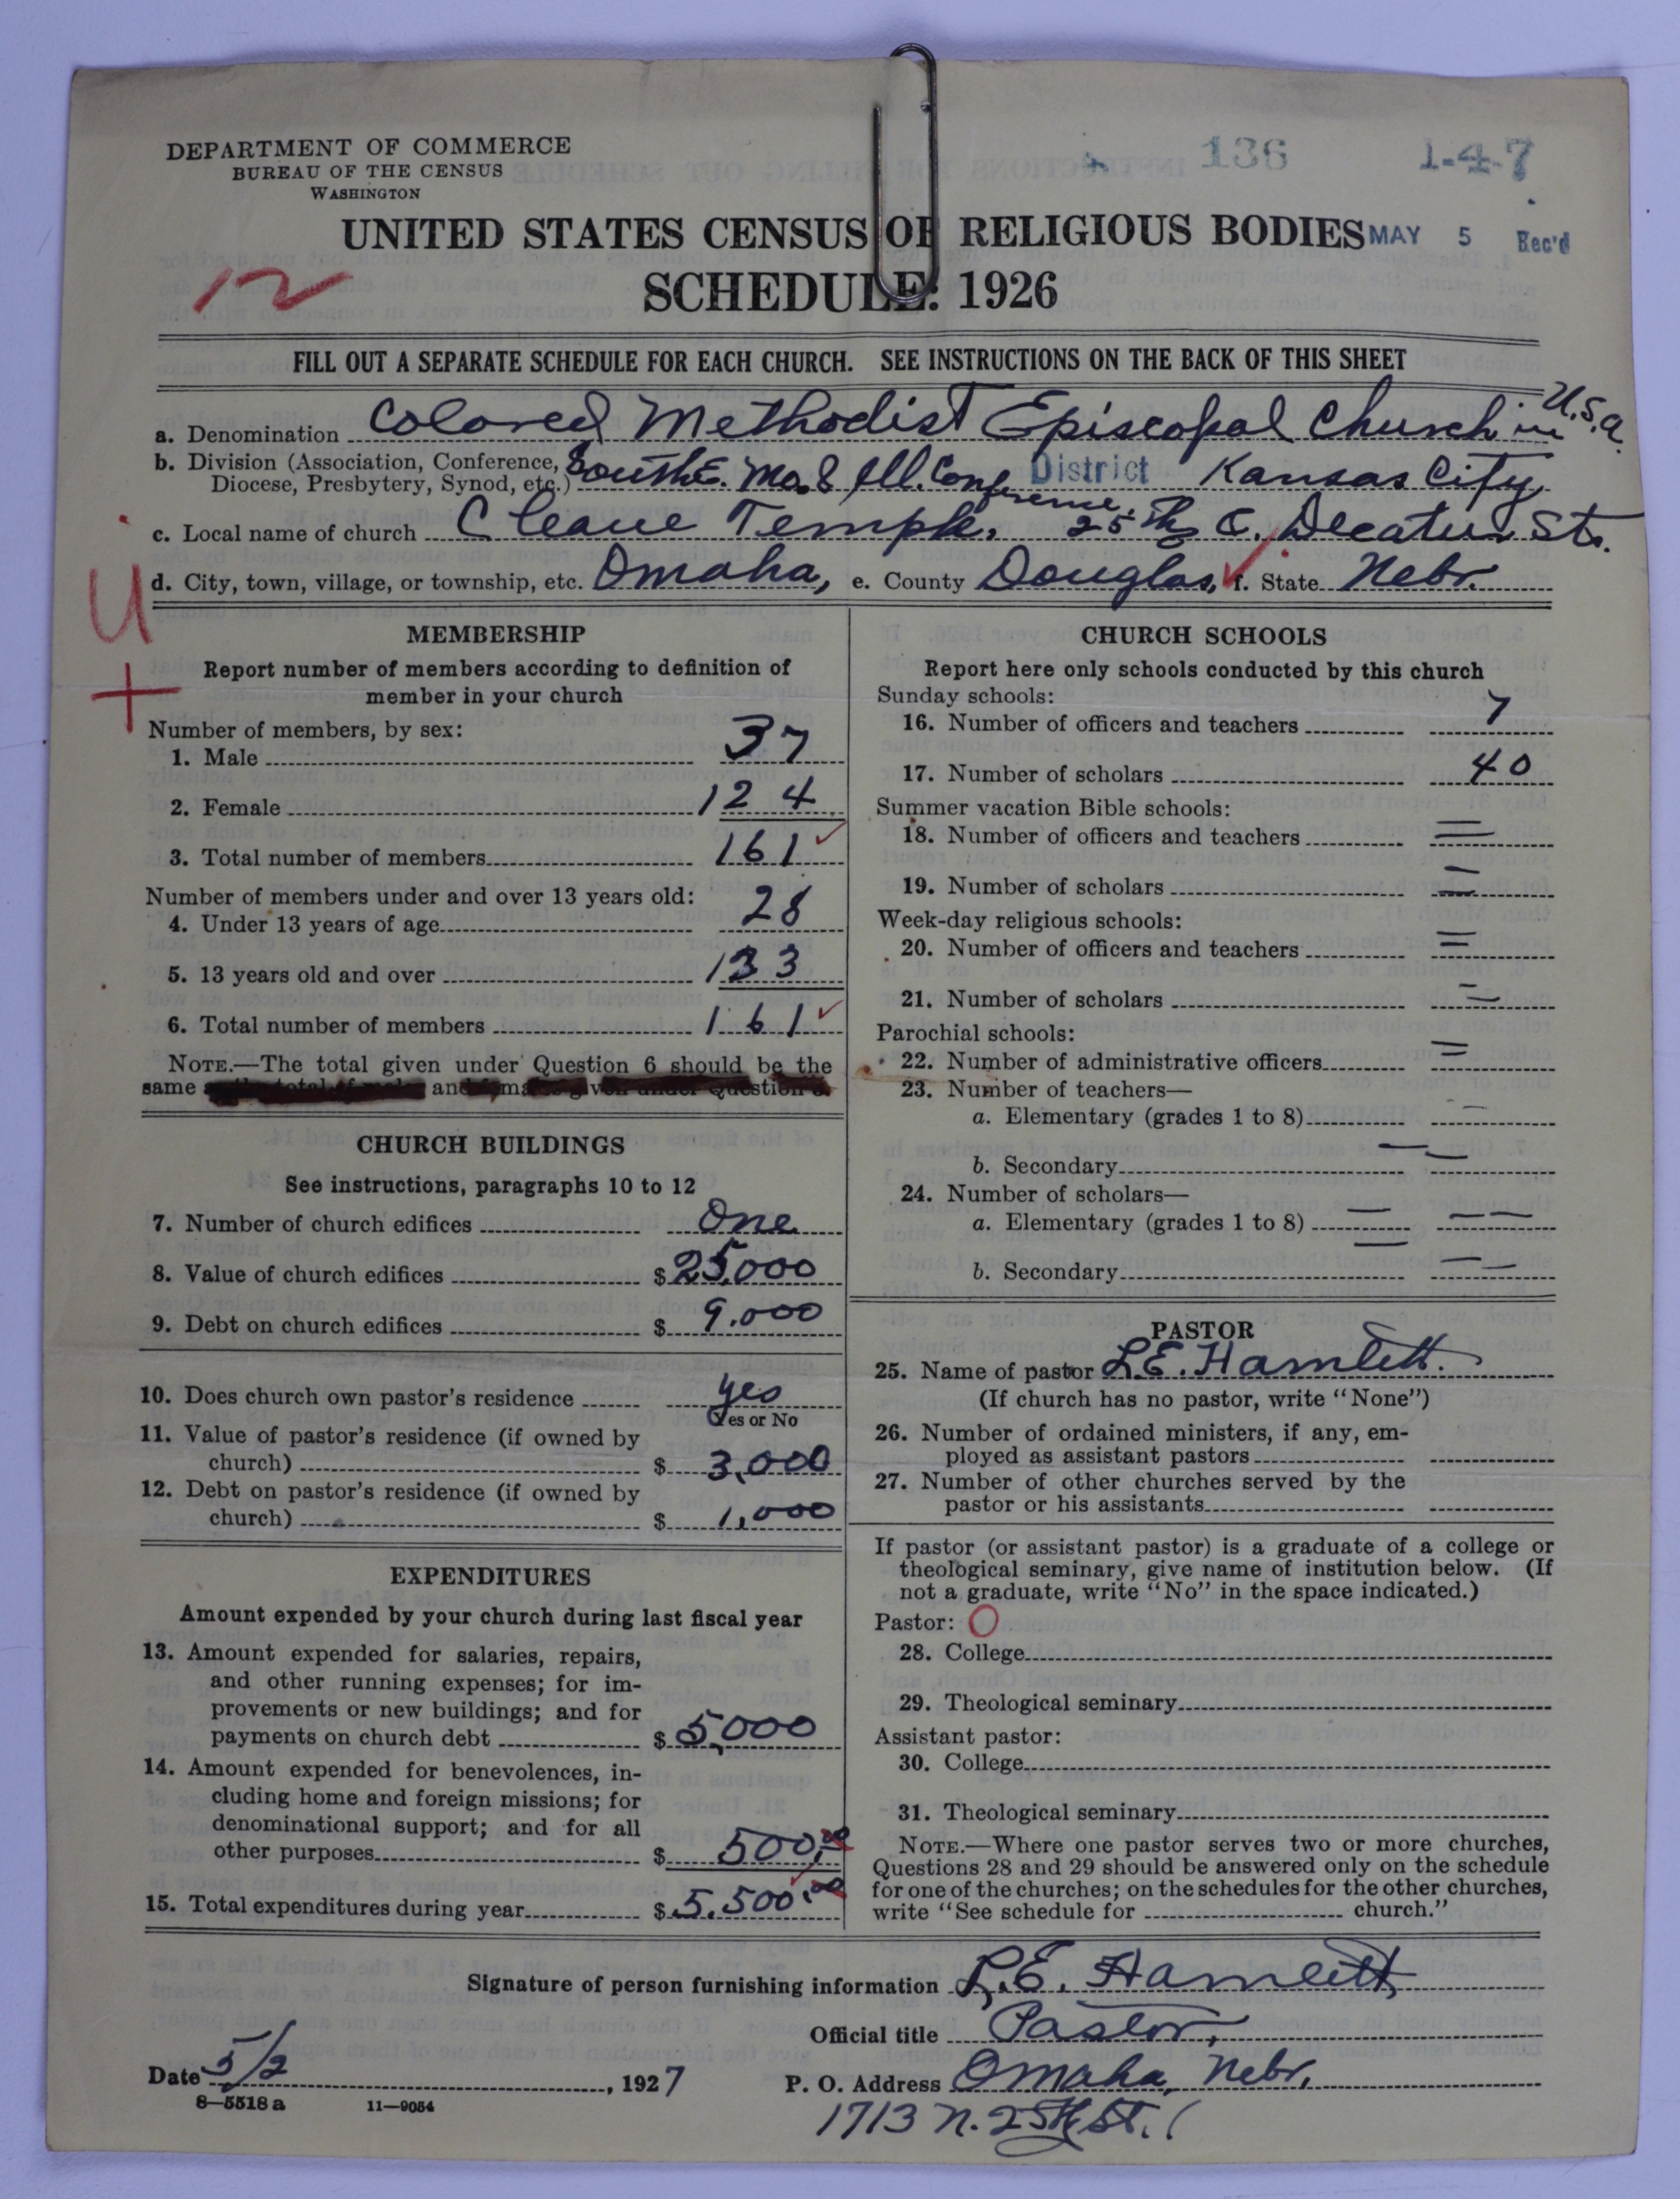 DEPARTMENT OF COMMERCE
BUREAU OF THE CENSUS
WASHINGTON
136 1-4-7
UNITED STATES CENSUS OF RELIGIOUS BODIES
MAY 5 Rec'd
12
SCHEDULE: 1926
FILL OUT A SEPARATE SCHEDULE FOR EACH CHURCH. SEE INSTRUCTIONS ON THE BACK OF THIS SHEET
a. Denomination Colored Methodist Episcopal Church in U.S.a.
b. Division (Association, Conference, Diocese, Presbytery, Synod, etc.) South E. Mo. & Ill. Conference. District Kansas City
c. Local name of church Cleave Temple, 25th & Decatur St.
d. City, town, village, or township, etc. Omaha, e. County Douglas, f. State Nebr.
U
+
MEMBERSHIP
Report number of members according to definition of
member in your church
Number of members, by sex:
1. Male 37
2. Female 124
3. Total number of members 161
Number of members under and over 13 years old:
4. Under 13 years of age 28
5. 13 years old and over 133
6. Total number of members 161
NOTE.—The total given under Question 6 should be the
same
CHURCH BUILDINGS
See instructions, paragraphs 10 to 12
7. Number of church edifices One
8. Value of church edifices $ 25,000
9. Debt on church edifices $ 9.000
10. Does church own pastor's residence yes
Yes or No
11. Value of pastor's residence (if owned by
church) $ 3,000
12. Debt on pastor's residence (if owned by
church) $ 1,000
EXPENDITURES
Amount expended by your church during last fiscal year
13. Amount expended for salaries, repairs,
and other running expenses; for im-
provements or new buildings; and for
payments on church debt $ 5,000
14. Amount expended for benevolences, in-
cluding home and foreign missions; for
denominational support; and for all
other purposes $ 500.00
15. Total expenditures during year $ 5.500.00
CHURCH SCHOOLS
Report here only schools conducted by this church
Sunday schools:
16. Number of officers and teachers 7
17. Number of scholars 40
Summer vacation Bible schools:
18. Number of officers and teachers
19. Number of scholars
Week-day religious schools:
20. Number of officers and teachers
21. Number of scholars
Parochial schools:
22. Number of administrative officers
23. Number of teachers—
a. Elementary (grades 1 to 8)
b. Secondary
24. Number of scholars—
a. Elementary (grades 1 to 8)
b. Secondary
PASTOR
25. Name of pastor L.E. Hamlett.
(If church has no pastor, write "None")
26. Number of ordained ministers, if any, em-
ployed as assistant pastors
27. Number of other churches served by the
pastor or his assistants
If pastor (or assistant pastor) is a graduate of a college or
theological seminary, give name of institution below. (If
not a graduate, write "No" in the space indicated.)
Pastor: O
28. College
29. Theological seminary
Assistant pastor:
30. College
31. Theological seminary
NOTE.—Where one pastor serves two or more churches,
Questions 28 and 29 should be answered only on the schedule
for one of the churches; on the schedules for the other churches,
write "See schedule for church."
Signature of person furnishing information L.E. Hamlett
Official title Pastor,
Date 5/2, 1927
P. O. Address Omaha, Nebr.
1713 N. 25th St.
8—5518 a 11—9054